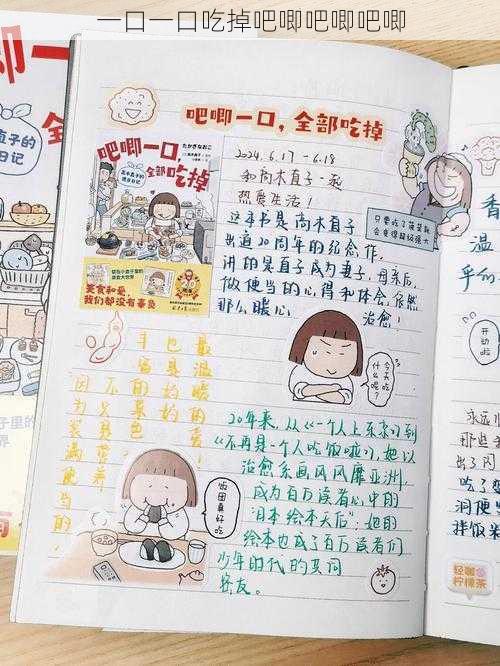 一口一口吃掉吧唧吧唧吧唧
吧唧一口，全部吃掉
たかぎなおこ
吧唧一口，
全部吃掉
美食和爱，
我们都没有辜负
2024.6.17-6.18
和高木直子一起
热爱生活！
这本书是高木直子
出道20周年的纪念作，
讲的是直子成为妻子、母亲后，
做便当的心得和体会，依然
那么暖心
治愈！
只要吃了菠菜就
会变得超级强大
今天吃
什么
呢？
最温暖的爱，
也是妈妈的
手
不只是色
因为装满
便当的
20年来，从《一个人上东京》到
《不再是一个人吃饭啦》，她以
治愈系画风风靡亚洲，
成为百万读者心中的
“日本绘本天后”，她的
绘本也成了百万读者们
少年时代的共同
密友。
饭团真好吃
直子的
日记
子里的
界
香
温
乎的
开动
啦
永远
那些
出了门
吃了
洞便
拌饭
轻喝
柠檬茶